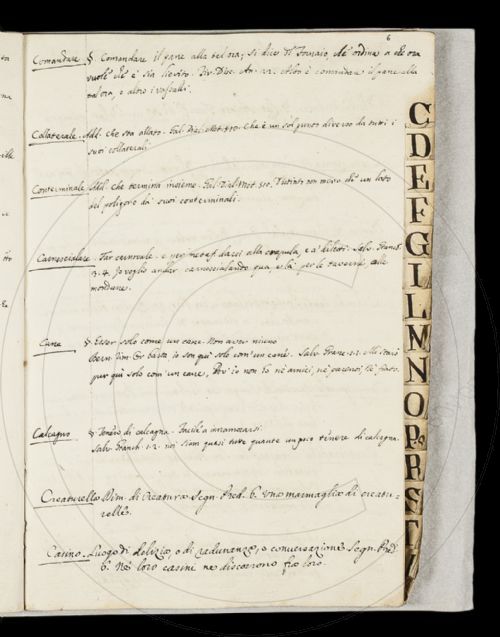 6
Comandare. §. Comandare il pane alla tal ora; si dice il Fornaio, che ordina a che ora
vuole che è sia lievito. Alt. è comandare il pane alla
tal ora, e altro i vassalli.
Collaterale. Add. che sta allato. Gal. Dial. Mot. 510. Che è un sol punto diverso da tutti i
suoi collaterali.
Conterminale. Add. che termina insieme. Gal. Dial. Mot. 510. non meno che un lato
del poligono da' suoi conterminali.
Carnescialare. Far carnovale. e per metaf. darsi alla crapula, e a' diletti. Salv. Granch.
3. 4. Io voglio andar carnescialando qua, e là per le taverne colle
mondane.
Cane §. Esser solo come un cane. Non aver niuno
Bern. rim. Or basta io son quì solo com' un cane. Salv. Granc. 1. 2.
pur quì solo com' un cane, io non ho nè amici, nè parenti, nè
Calcagno §. Tenero di calcagna. Facile a innamorarsi
Salv. Granch. 1. 2. noi siam quasi tutte quante un poco tenere di calcagna.
Creaturella Dim. di Creatura Segn. Pred. 6. una marmaglia di creatu-
relle.
Casino. Luogo di delizia, o di radunanza, o conversazione. Segn. Pred.
6. Nè loro casini ne discorrono fra loro.
C
D
E
F
G
I
L
M
N
O
P
R
S
T